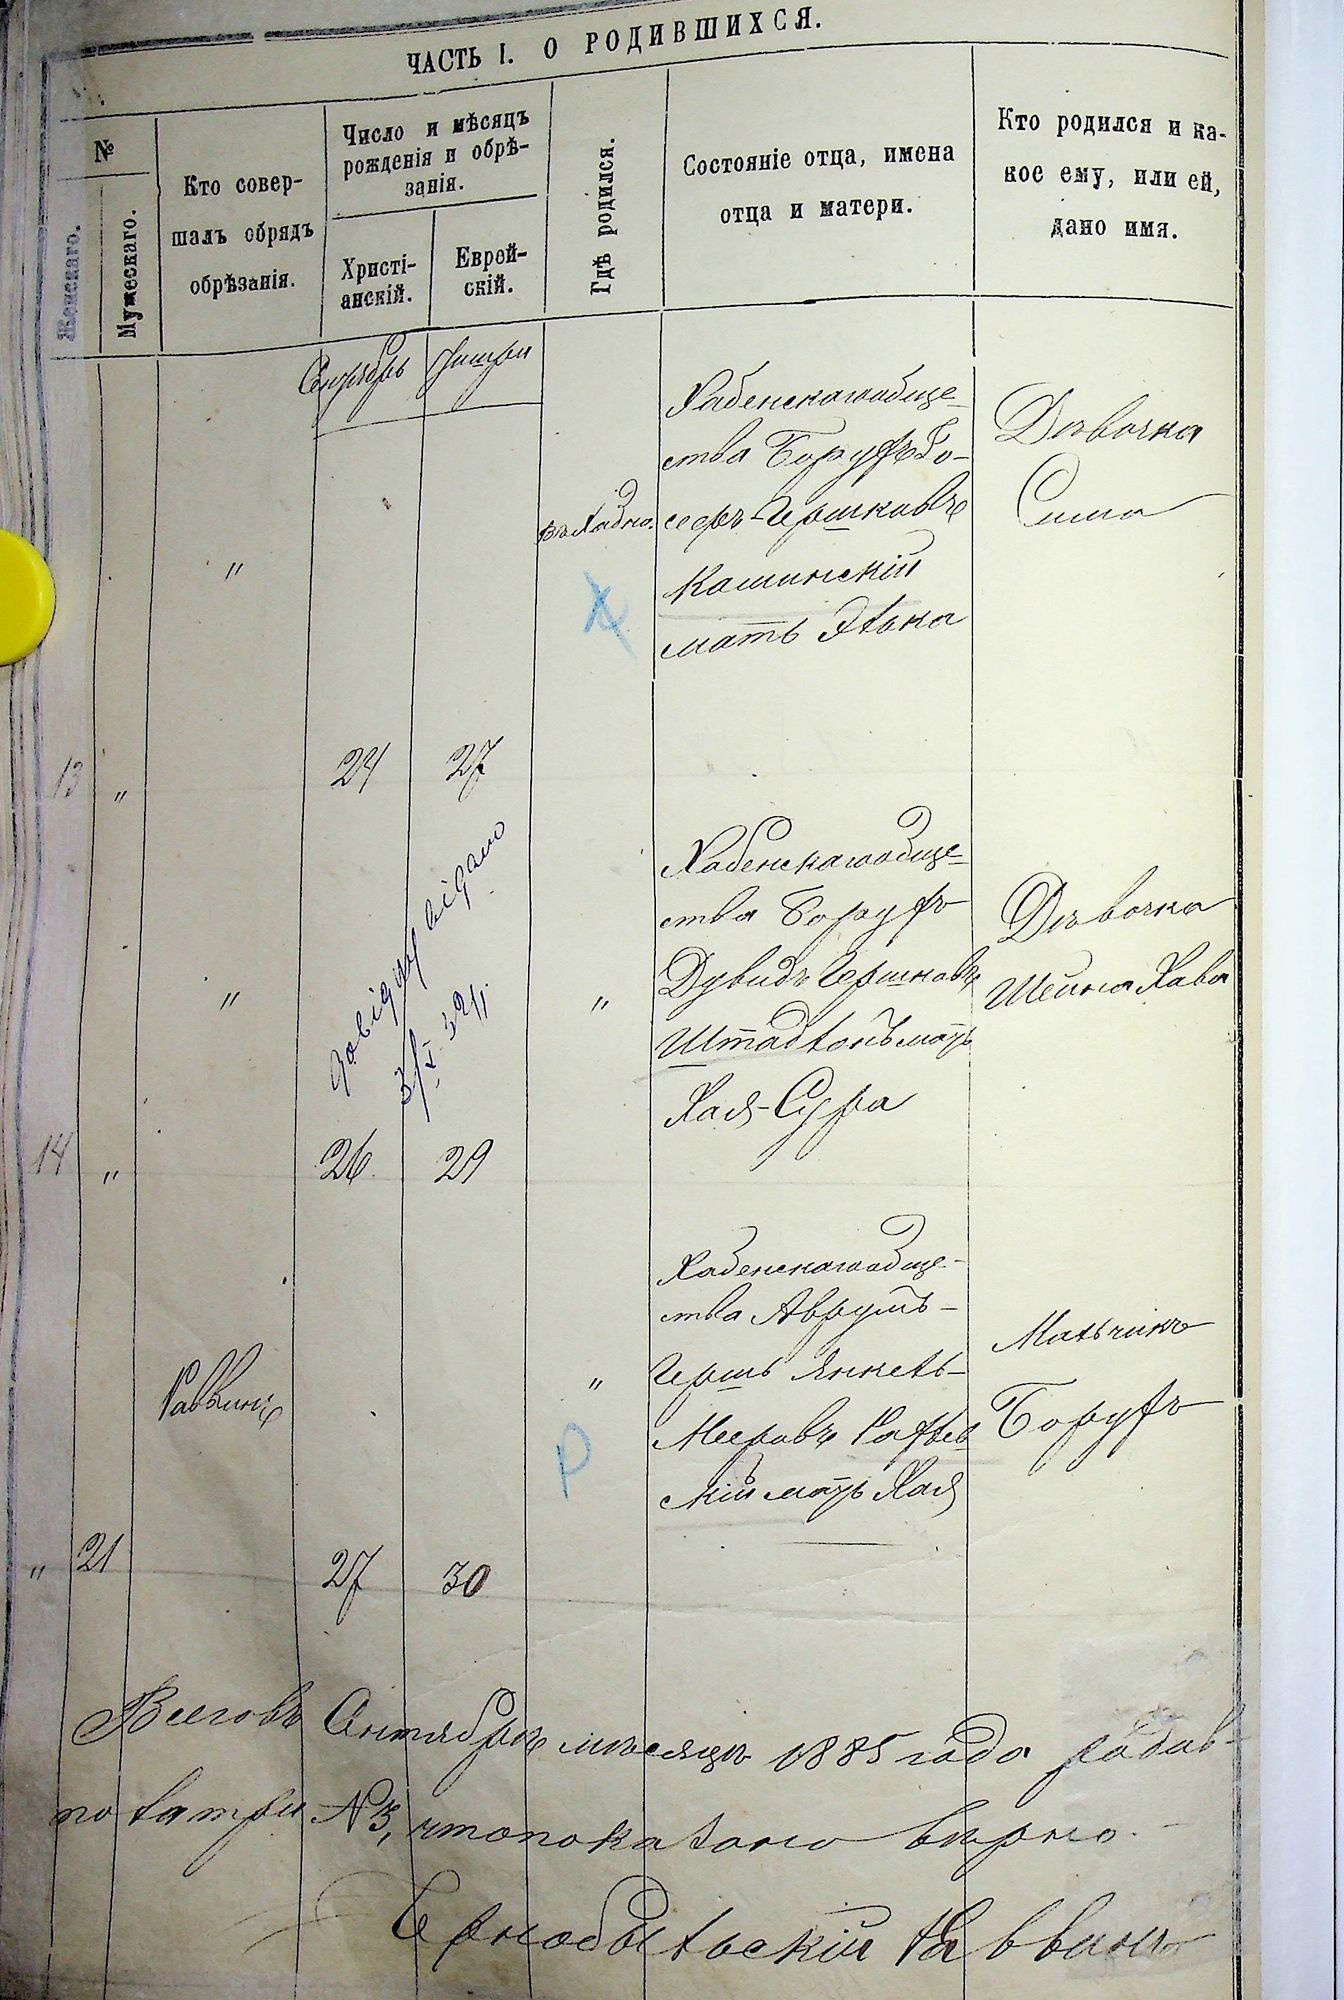 ЧАСТЬ I. О РОДИВШИХСЯ.
№
Женскаго.
Мужескаго.
Кто совер-
шалъ обрядъ
обрѣзанія.
Число и мѣсяцъ
рожденія и обрѣ-
занія.
Христі-
анскій.
Еврей-
скій.
Гдѣ родился.
Состояніе отца, имена
отца и матери.
Кто родился и ка-
кое ему, или ей,
дано имя.
Сентябрь Тишри
13 " " 24 27
Хабенскагообще-
ства Борухъ Іо-
сефъ-Гершковъ
Кошинскій
мать Элька
Дѣвочка
Сима
14 " " 26 29 "
Хабенскагообще-
ства Борухъ
Дувидъ Гершковъ
мать
Хая-Сура
Дѣвочка
Шейна Хава
3/I 34
" 21 Раввинъ 27 30 "
Хабенскагообще-
ства Аврумъ-
Гершь Янкель-
Мееровъ
скій мать Хая
Мальчикъ
Борухъ
Р
Всего въ Сентябрѣ мѣсяцѣ 1885 года
три №3, что показано вѣрно.
Чернобыльскій Раввинъ